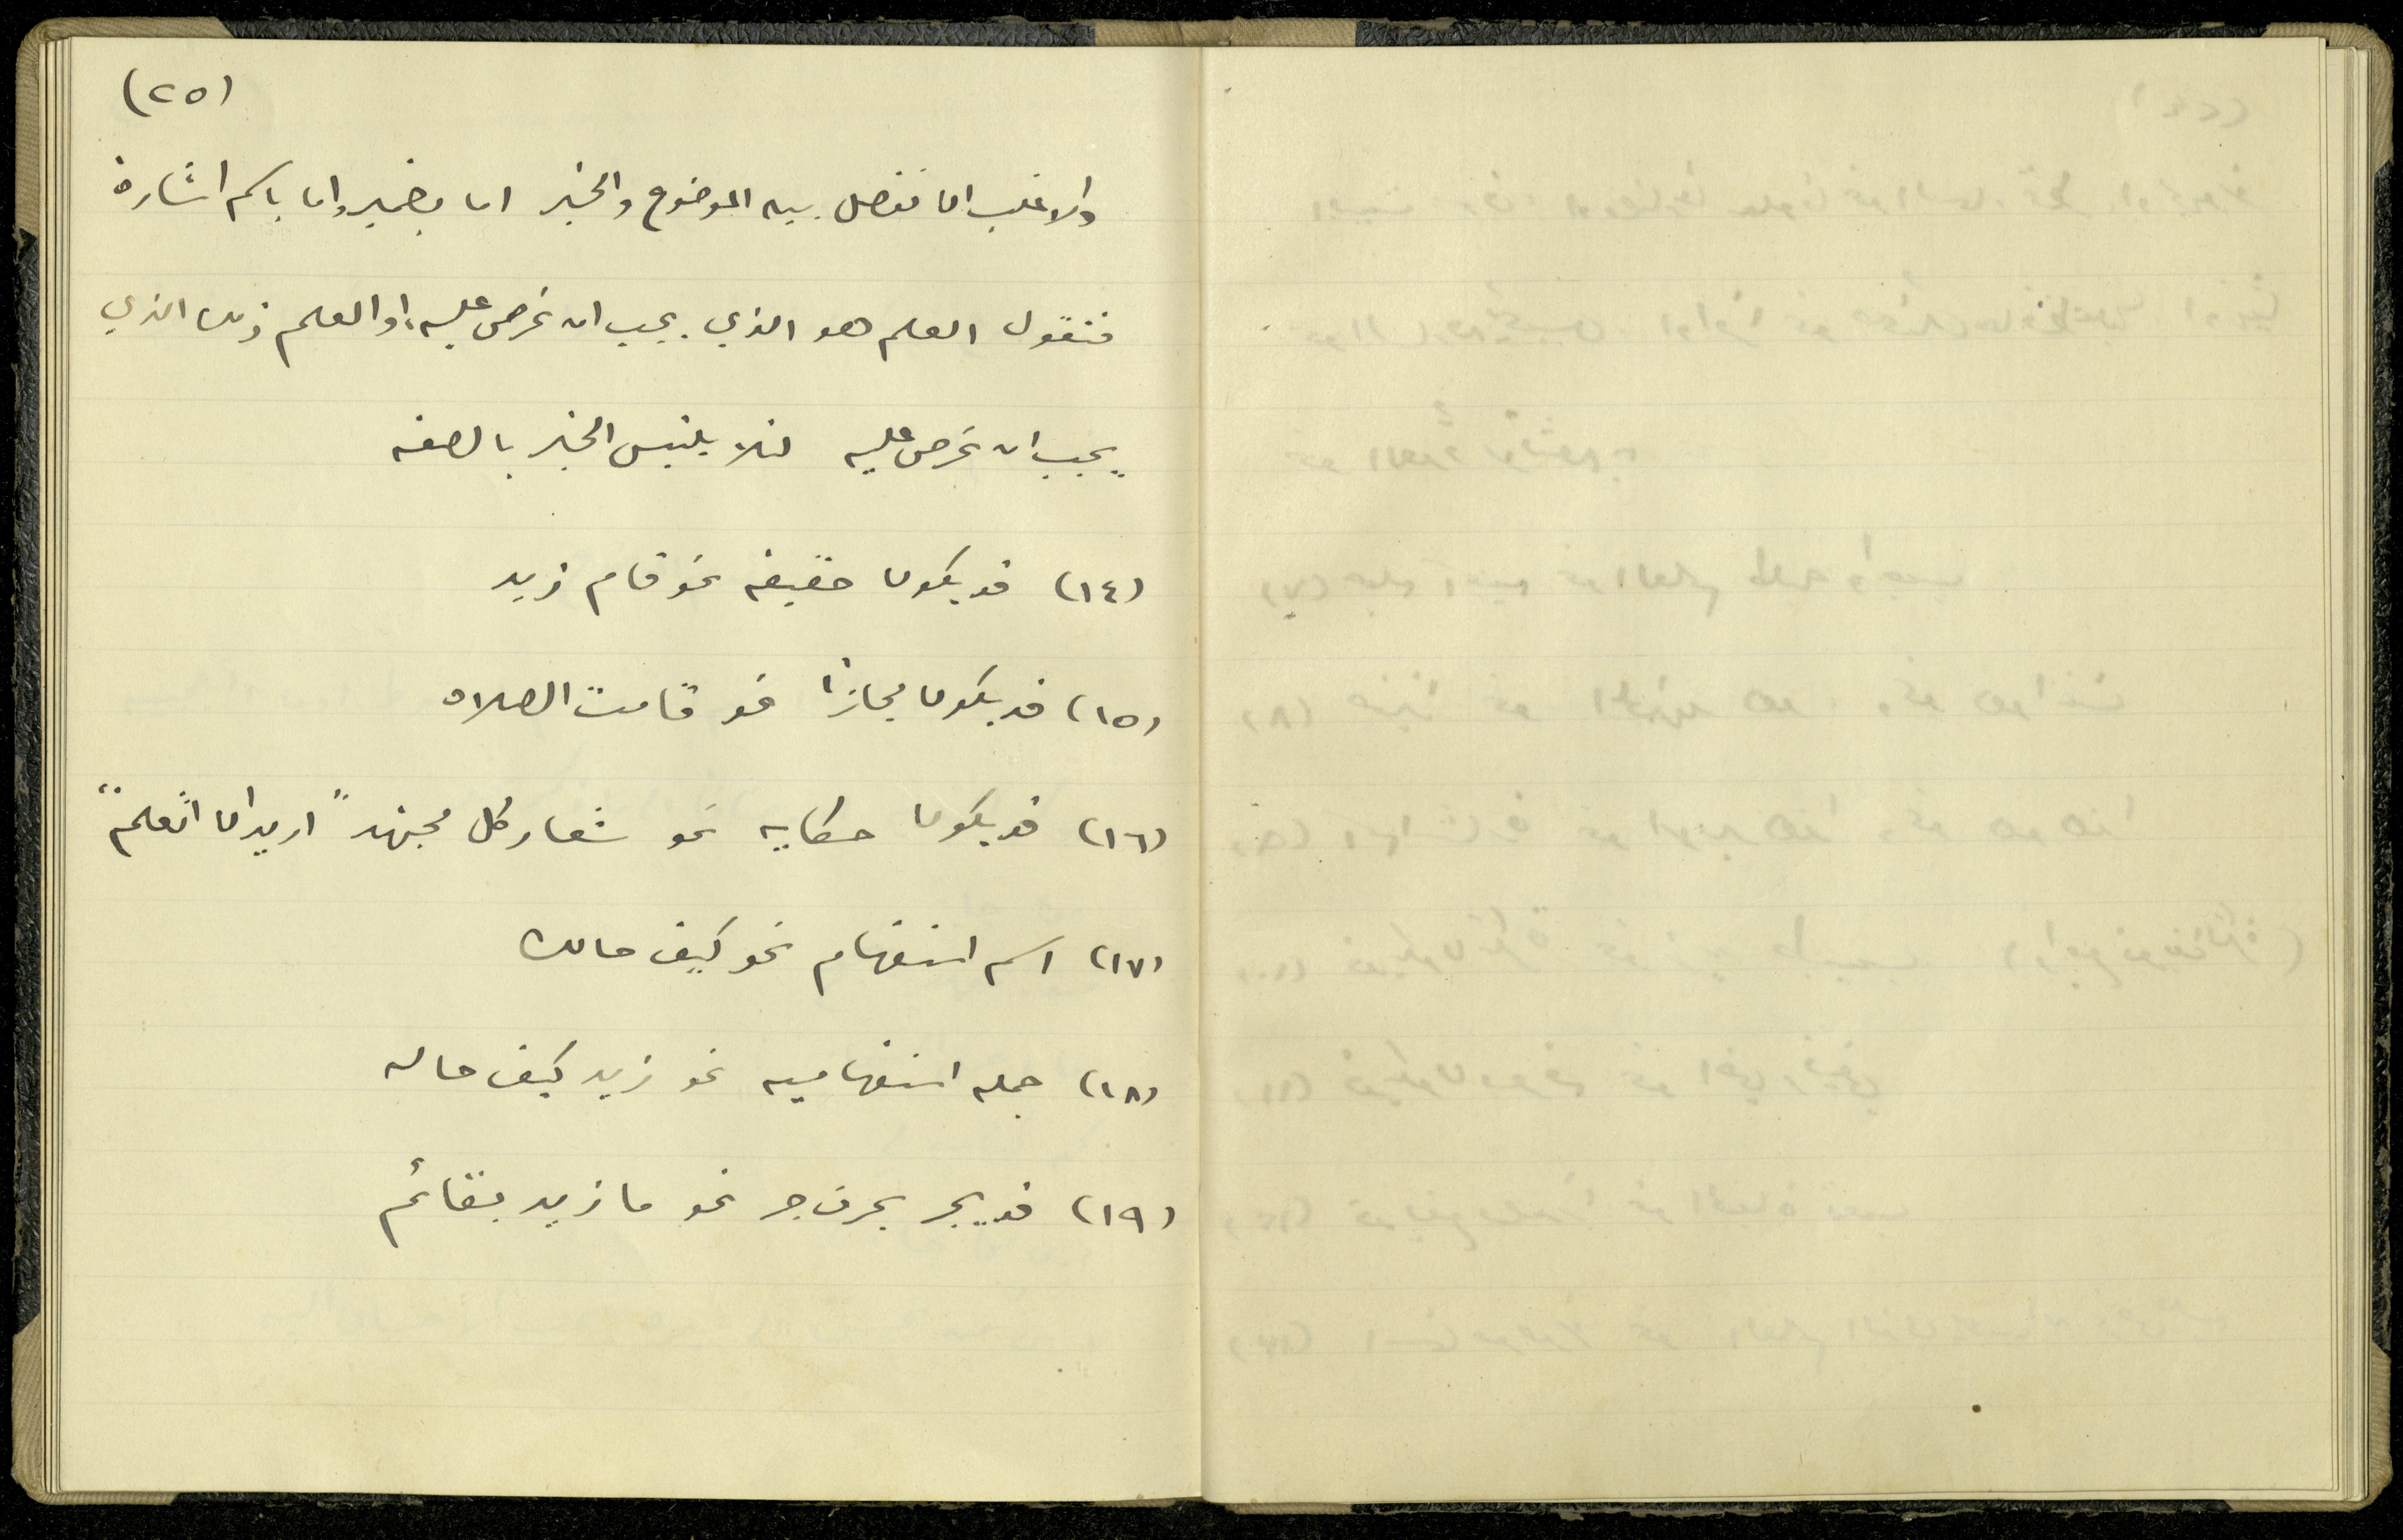 (٢٥)
والاغلب ان نفصل بين الموضوع والخبر اما بضمير واما باسم اشارة
فنقول العلم هو الذي يجب ان نحرص عليه، او العلم ذلك الذي
يجب ان نحرص عليه لئلا يلتبس الخبر بالصفه
(١٤) قد يكون حقيقه نحو قام زيد
(١٥) قد يكون مجازاً نحو قامت الصلاه
(١٦) قد يكون حكايه نحو شعار كل مجتهد "اريد ان اتعلم"
(١٧) اسم استفهام نحو كيف حالك
(١٨) جمله استفهاميه نحو زيد كيف حاله
(١٩) قد يجر بحرف جر نحو ما زيد بقائم